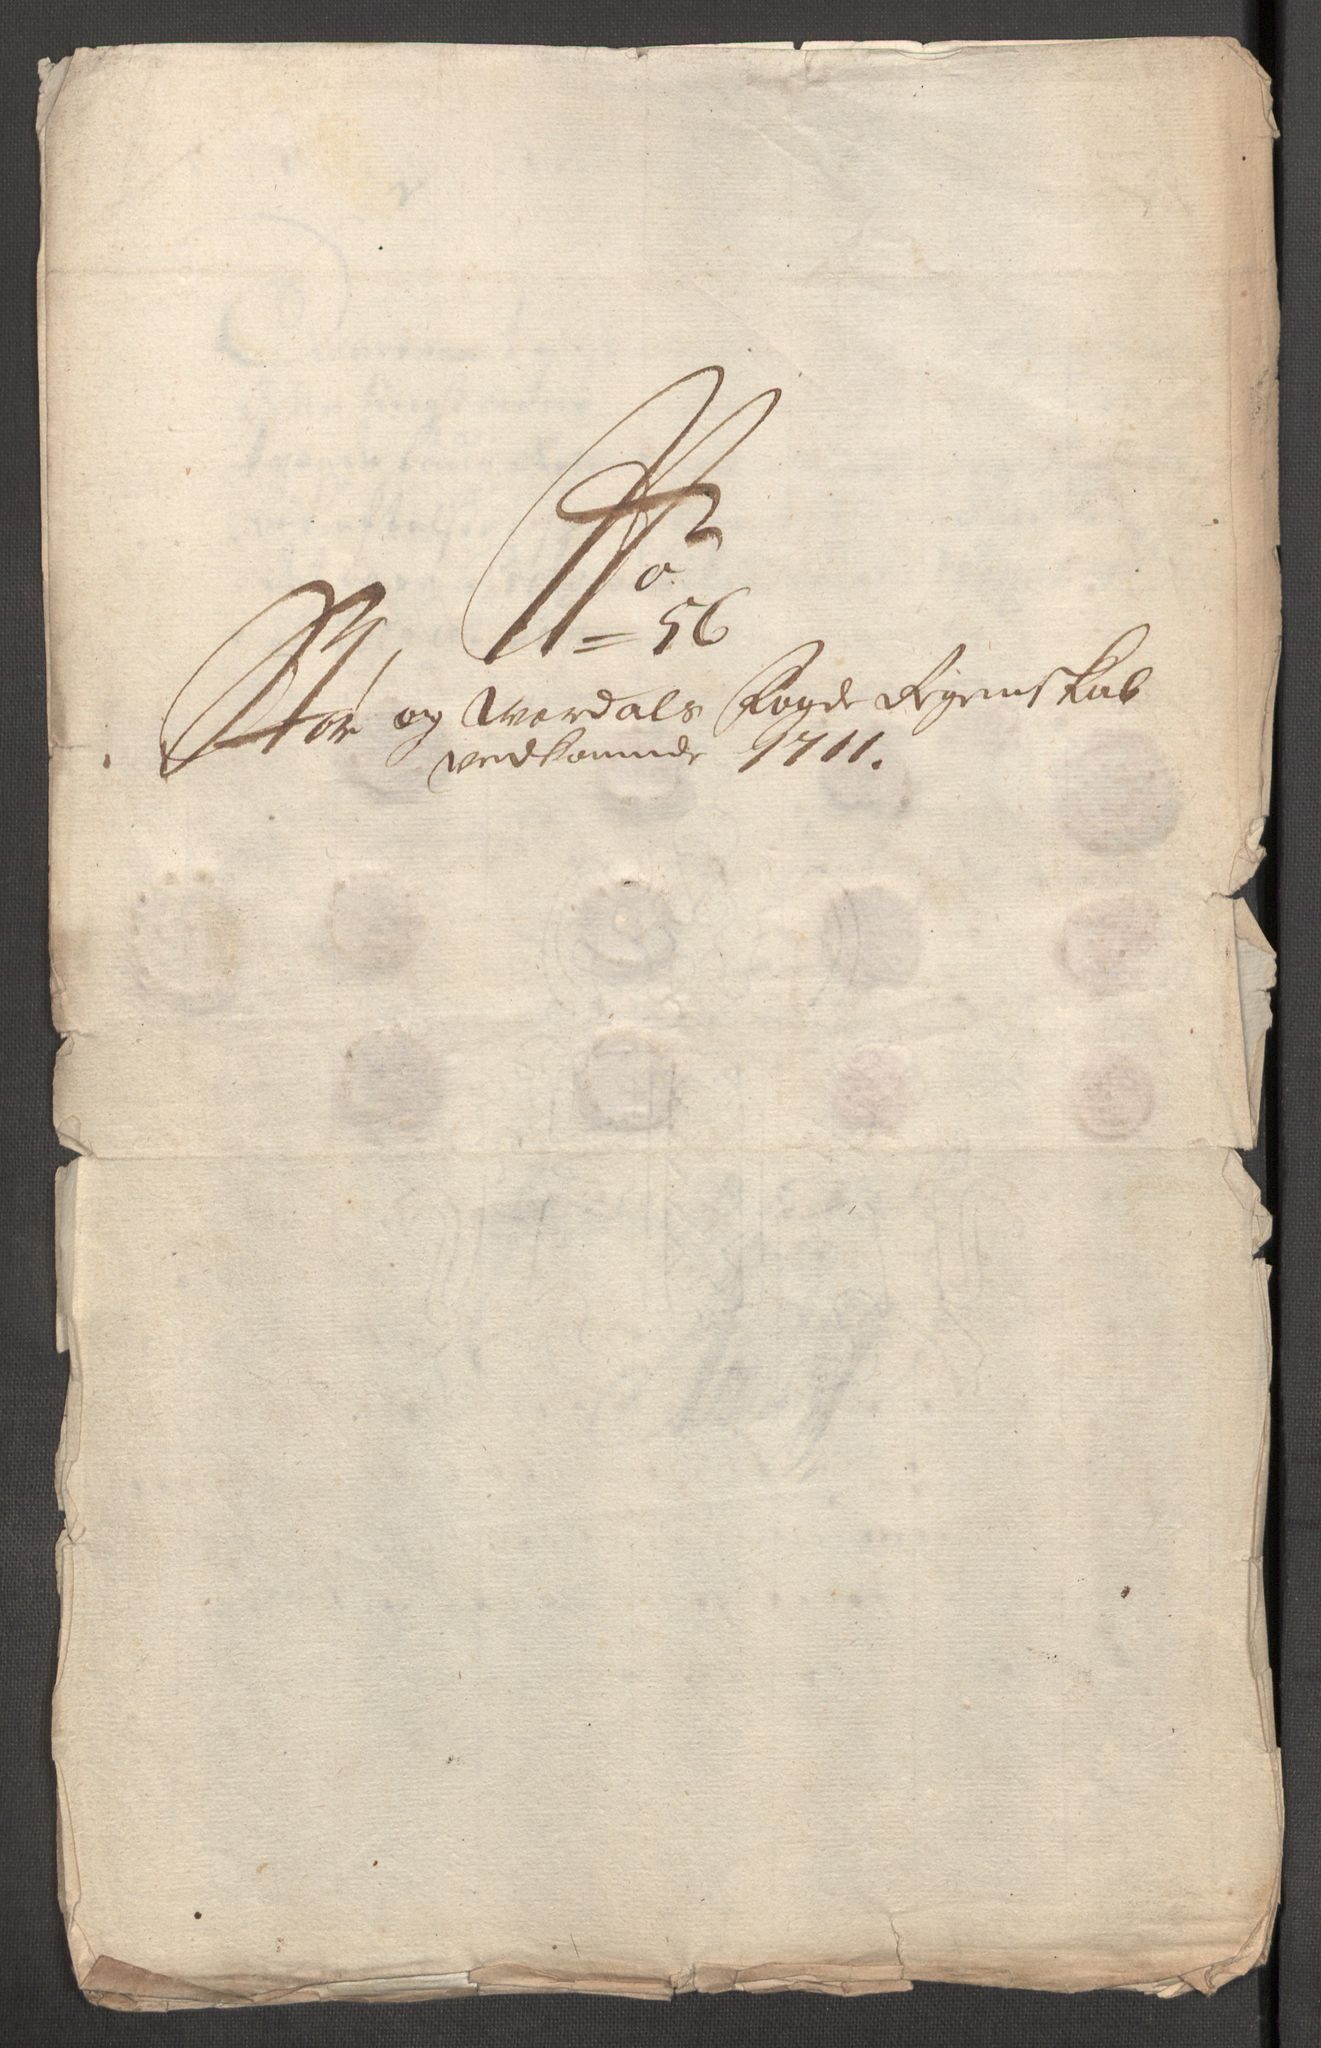 No
56
Stör og Werdals Fogde Regenskab
vedkommende 1711.